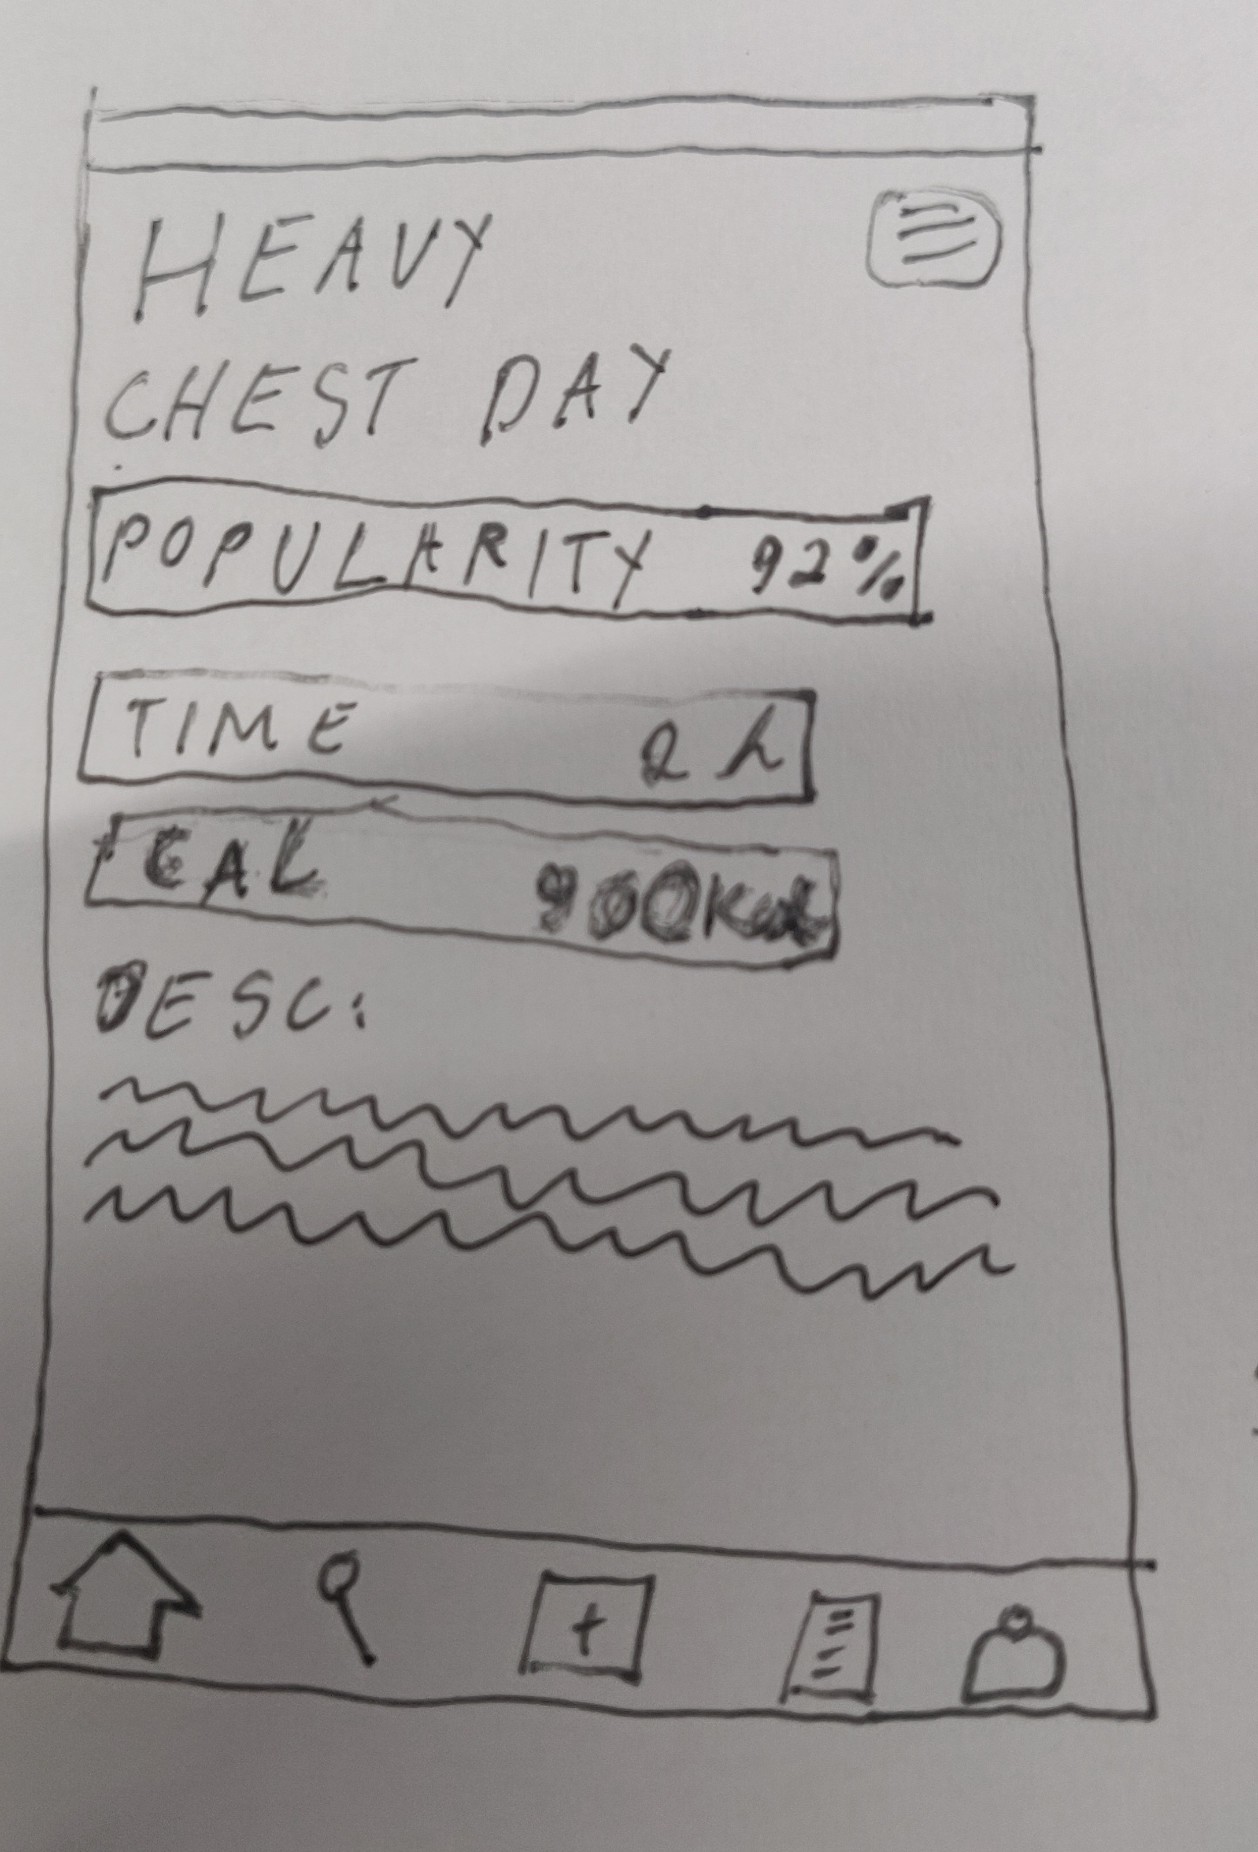 HEAVY
CHEST DAY
POPULARITY 92%
TIME 2 h
CAL 900Kcal
DESC:
+